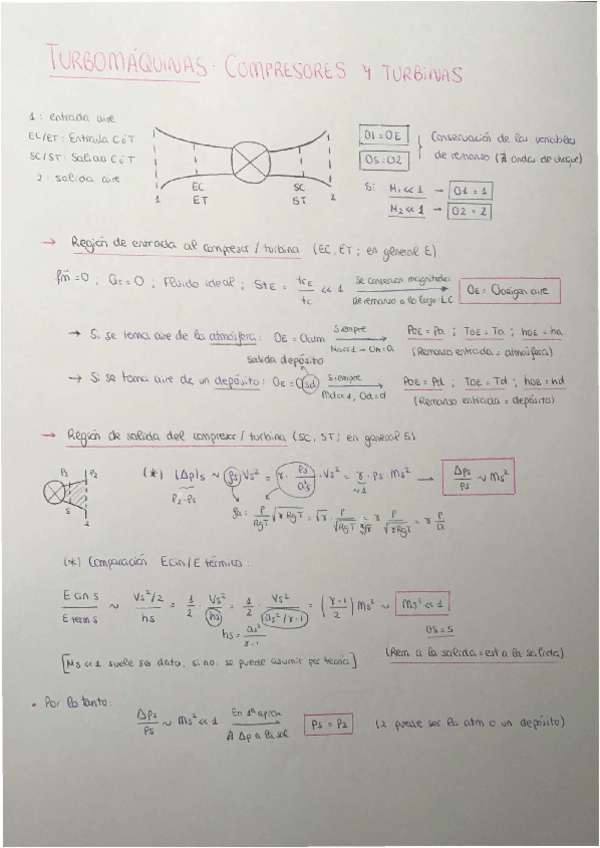 TURBOMÁQUINAS. COMPRESORES Y TURBINAS
1: entrada aire
EC/ET: Entrada C ó T
SC/ST: Salida C ó T
2: salida aire
1 EC ET SC ST 2
01 = 0E
0S = 02
Conservación de las variables
de remanso (∄ onda de choque)
Si M₁ << 1 → 01 = 1
M₂ << 1 → 02 = 2
→ Región de entrada al compresor / turbina (EC, ET; en general E)
f̄m = 0 ; Qr = 0 ; Fluido ideal ; StE = trE/tc << 1 Se conservan magnitudes de remanso a lo largo LC → 0E = 0origen aire
→ Si se toma aire de la atmósfera: 0E = 0atm Siempre Ma<<1 → 0a = a P0E = Pa ; T0E = Ta ; h0E = ha
(Remanso entrada = atmósfera)
salida depósito
→ Si se toma aire de un depósito: 0E = 0sd Siempre Md<<1, 0d = d P0E = Pd ; T0E = Td ; h0E = hd
(Remanso entrada = depósito)
→ Región de salida del compresor / turbina (SC, ST; en general S)
Ps P₂ S 2
(*) (Δp)s ~ ρs Vs² = γ · Ps/a²s · Vs² = γ · Ps · Ms² → Δps/Ps ~ Ms²
P₂-Ps
~1
ρa: P/RgT √γRgT = √γ · P/√RgT = γ P/√γRgT = γ P/a
(*) Comparación Ecin/E térmica:
Ecin s/Eterm s ~ Vs²/2/hs = 1/2 · Vs²/hs = 1/2 · Vs²/as²/γ-1 = (γ-1/2) Ms² ~ Ms² << 1
hs = as²/γ-1
0S = S
[Ms << 1 suele ser dato, si no, se puede asumir por teoría]
(Rem. a la salida = est a la salida)
• Por lo tanto:
Δps/Ps ~ Ms² << 1 En 1ª aprox ∄ Δp a la sal. → Ps = P₂ (2 puede ser la atm o un depósito)